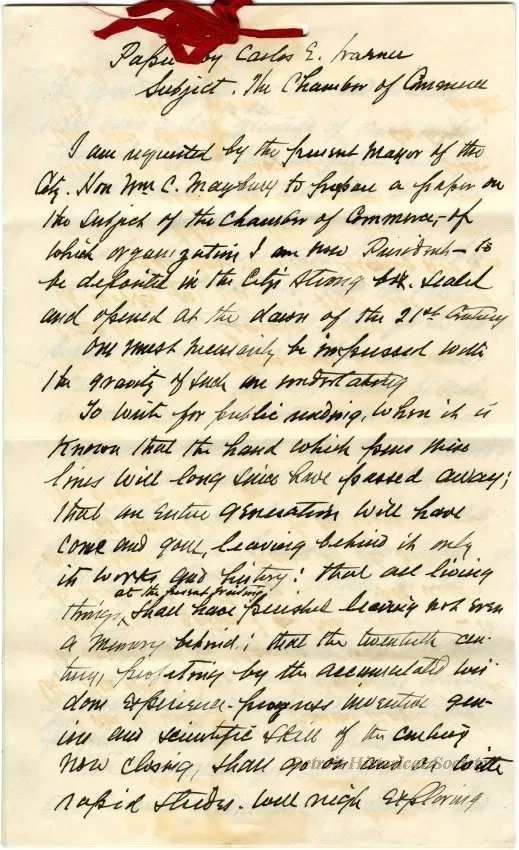 Paper by Carlos E. Warner
Subject. The Chamber of Commerce
I am requested by the present Mayor of the
City. Hon Wm C. Maybury to prepare a paper on
the subject of the Chamber of Commerce, of
which organization I am now President - to
be deposited in the City's strong box. Sealed
and opened at the dawn of the 21st Century
One must necessarily be impressed with
the gravity of such an undertaking
To write for public reading, when it is
known that the hand which pens these
lines will long since have passed away;
that an entire generation will have
come and gone, leaving behind it only
its works and history: that all living
at the present
things, shall have perished leaving not even
a memory behind; that the twentieth cen-
tury, profiting by the accumulated wis-
dom experience-progress inventive gen-
ius and scientific skill of the century
now closing, shall go on and on with
rapid strides. Well nigh exploring
Detroit Historical Society